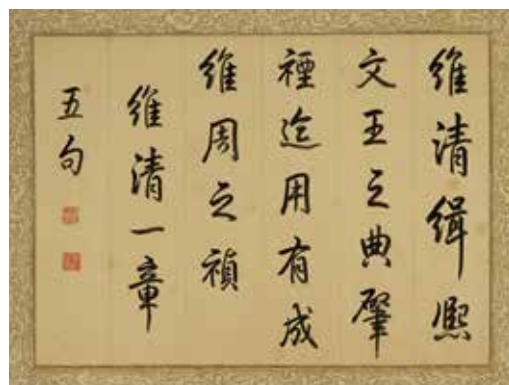 維清緝熙
文王之典肇
禋迄用有成
維周之禎
維清一章
五句